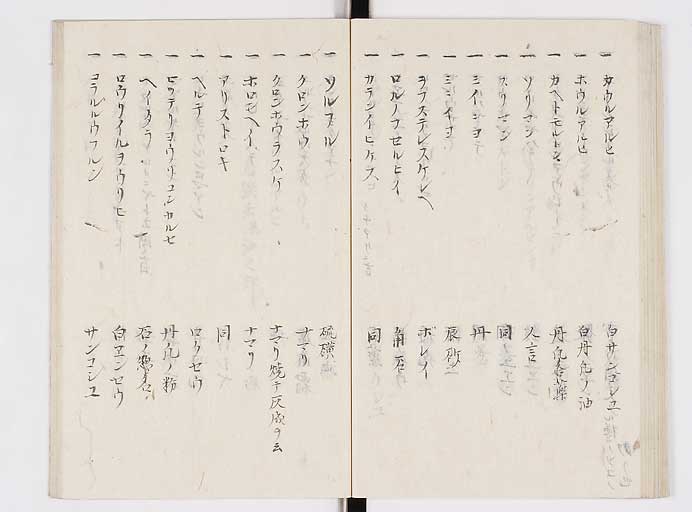 一 カウルアルヒ 白サンコシユ
一 ホウルアルヒ 白丹凢ノ油
一 カヘトモルトン 丹凢
一 ソリマン 人言
一 スリマン 同
一 ミイシヨ 丹
一 ミシイヨ 辰砂
一 ヲフステレスケレヘ ボレイ
一 ロルノフセルヒイ 石
一 カラシイヒケス 同
一 ソルフル 硫磺
一 クロンホウ ナマリ
一 クロンホウラスケ ナマリ焼テ灰成ヲ云
一 ホロモヘイ ナマリ
一 アリストロキ 同
一 ヘルテ ロクセウ
一 ヒッテリヨウリコンカルセ 丹凢ノ粉
一 ヘイタラ 石ノ惣名
一 ロウリイルヲウリヒ 白ヱンセウ
一 コラルルウフルン サンコシユ